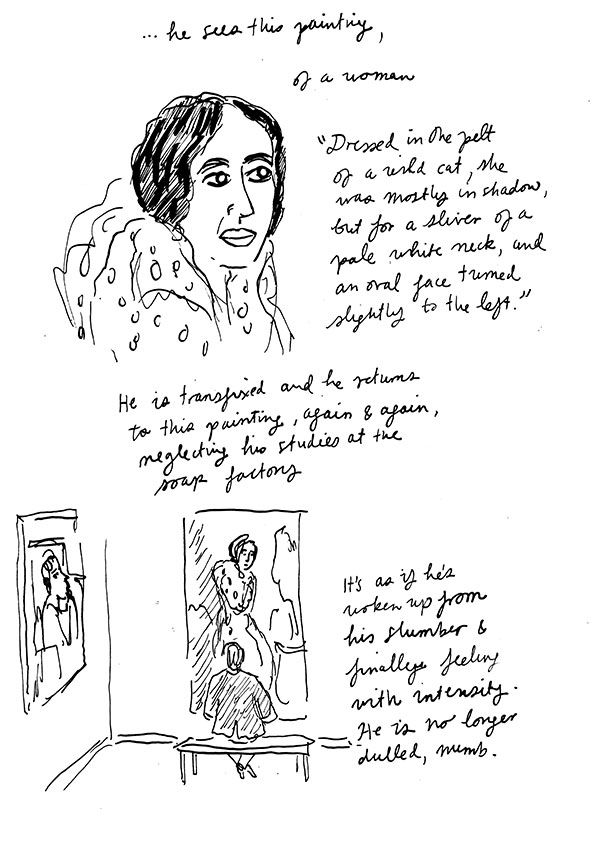 ... he sees this painting,
of a woman
"Dressed in the pelt
of a wild cat, she
was mostly in shadow,
but for a sliver of a
pale white neck, and
an oval face turned
slightly to the left."
He is transfixed and he returns
to this painting, again & again,
neglecting his studies at the
soap factory
It's as if he's
woken up from
his slumber &
finally feeling
with intensity.
He is no longer
dulled, numb.